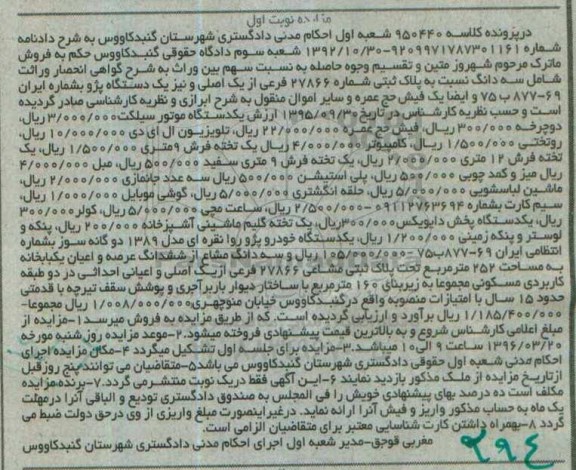 مزایده نوبت اول
درپرونده کلاسه ۹۵۰۴۴۰ شعبه اول احکام مدنی دادگستری شهرستان گنبدکاووس به شرح دادنامه
شماره ۹۲۰۹۹۷۱۷۸۷۳۰۱۱۶۱-۱۳۹۲/۱۰/۳۰ شعبه سوم دادگاه حقوقی گنبدکاووس حکم به فروش
ماترک مرحوم شهروز متین و تقسیم وجوه حاصله به نسبت سهم بین وراث به شرح گواهی انحصار وراثت
شامل سه دانگ نسبت به پلاک ثبتی شماره ۲۷۸۶۶ فرعی از یک اصلی و نیز یک دستگاه پژو بشماره ایران
۶۹-۸۷۷ ب ۷۵ و ایضا یک فیش حج عمره و سایر اموال منقول به شرح ابرازی و نظریه کارشناسی صادر گردیده
است و حسب نظریه کارشناس در تاریخ ۱۳۹۵/۰۹/۳۰ ارزش یکدستگاه موتور سیکلت ۳/۰۰۰/۰۰۰ ریال،
دوچرخه ۳۰۰/۰۰۰ ریال، فیش حج عمره ۲۲/۰۰۰/۰۰۰ ریال، تلویزیون ال ای دی ۱۰/۰۰۰/۰۰۰ ریال،
روتختی ۱/۵۰۰/۰۰۰ ریال، کامپیوتر ۴/۰۰۰/۰۰۰ ریال یک تخته فرش ۹متری ۱/۵۰۰/۰۰۰ ریال، یک
تخته فرش ۱۲ متری ۲/۰۰۰/۰۰۰ ریال، یک تخته فرش ۹ متری سفید ۵۰۰/۰۰۰ ریال، مبل ۴/۰۰۰/۰۰۰
ریال میز و کمد چوبی ۵۰۰/۰۰۰ ریال، پلی استیشن ۵۰۰/۰۰۰ ریال سه عدد جانمازی ۲/۰۰۰/۰۰۰ ریال،
ماشین لباسشویی ۵/۰۰۰/۰۰۰ ریال، حلقه انگشتری ۵/۰۰۰/۰۰۰ ریال، گوشی موبایل ۱/۰۰۰/۰۰۰ ریال،
سیم کارت بشماره ۰۹۱۱۲۷۶۳۶۹۴-۲/۵۰۰/۰۰۰ ریال، ساعت مچی ۵/۰۰۰/۰۰۰ ریال، کولر ۳۰۰/۰۰۰
ریال، یکدستگاه پخش دایویکس ۳۰۰/۰۰۰ریال، یک تخته گلیم ماشینی آشپزخانه ۲۰۰/۰۰۰ ریال، پنکه و
لوستر و پنکه زمینی ۱/۲۰۰/۰۰۰ ریال، یکدستگاه خودرو پژو روا نقره ای مدل ۱۳۸۹ دو گانه سوز بشماره
انتظامی ایران ۶۹-۸۷۷ب۷۵ ۱۰۵/۰۰۰/۰۰۰ ریال و سه دانگ مشاع از ششدانگ عرصه و اعیان یکبابخانه
به مساحت ۲۵۲ مترمربع تحت پلاک ثبتی مشاعی ۲۷۸۶۶ فرعی ازیک اصلی و اعیانی احداثی در دو طبقه
کاربردی مسکونی مجموعا به زیربنای ۱۶۰ مترمربع با ساختار دیوار باربرآجری و پوشش سقف تیرچه با قدمتی
حدود ۱۵ سال با امتیازات منصوبه واقع درگنبدکاووس خیابان منوچهری ۱/۰۰۸/۰۰۰/۰۰۰ ریال مجموعا-
۱/۱۸۵/۴۰۰/۰۰۰ ریال برآورد و ارزیابی گردیده است. که از طریق مزایده به فروش میرسد۱-مزایده از
مبلغ اعلامی کارشناس شروع و به بالاترین قیمت پیشنهادی فروخته میشود.۲-موعد مزایده روز شنبه مورخه
۱۳۹۶/۰۳/۲۰ ساعت ۹ الی۱۰ میباشد.۳-مزایده برای جلسه اول تشکیل میگردد ۴-مکان مزایده اجرای
احکام مدنی شعبه اول حقوقی دادگستری شهرستان گنبدکاووس می باشد۵-متقاضیان می توانند پنج روز قبل
ازتاریخ مزایده از ملک مذکور بازدید نمایند ۶-این آگهی فقط دریک نوبت منتشر می گردد.۷-برنده مزایده
مکلف است ده درصد بهای پیشنهادی خویش را فی المجلس به صندوق دادگستری تودیع و الباقی آنرا درمهلت
یک ماه به حساب مذکور واریز و فیش آنرا ارائه نماید. درغیراینصورت مبلغ واریزی از وی درحق دولت ضبط می
گردد ۸-بهمراه داشتن کارت شناسایی معتبر برای متقاضیان الزامی است.
مغربی قوجق-مدیر شعبه اول اجرای احکام مدنی دادگستری شهرستان گنبدکاووس
۲۹۴